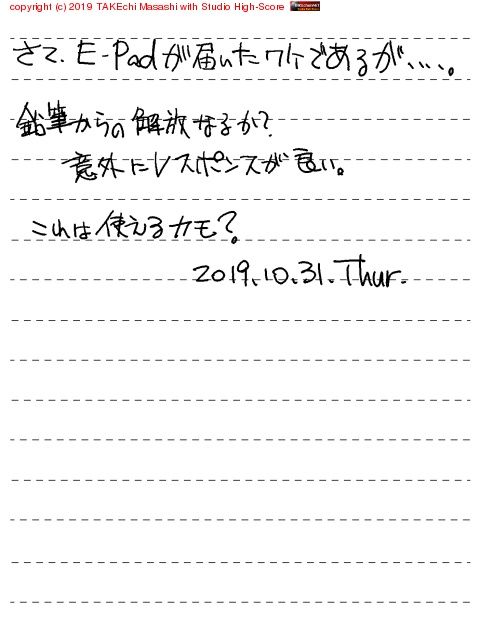 copyright (c) 2019 TAKEchi Masashi with Studio High-Score
さて、E-Padが届いたワケであるが、、、、。
鉛筆からの解放なるか?
意外にレスポンスが良い。
これは使えるカモ?
2019.10.31.Thur.